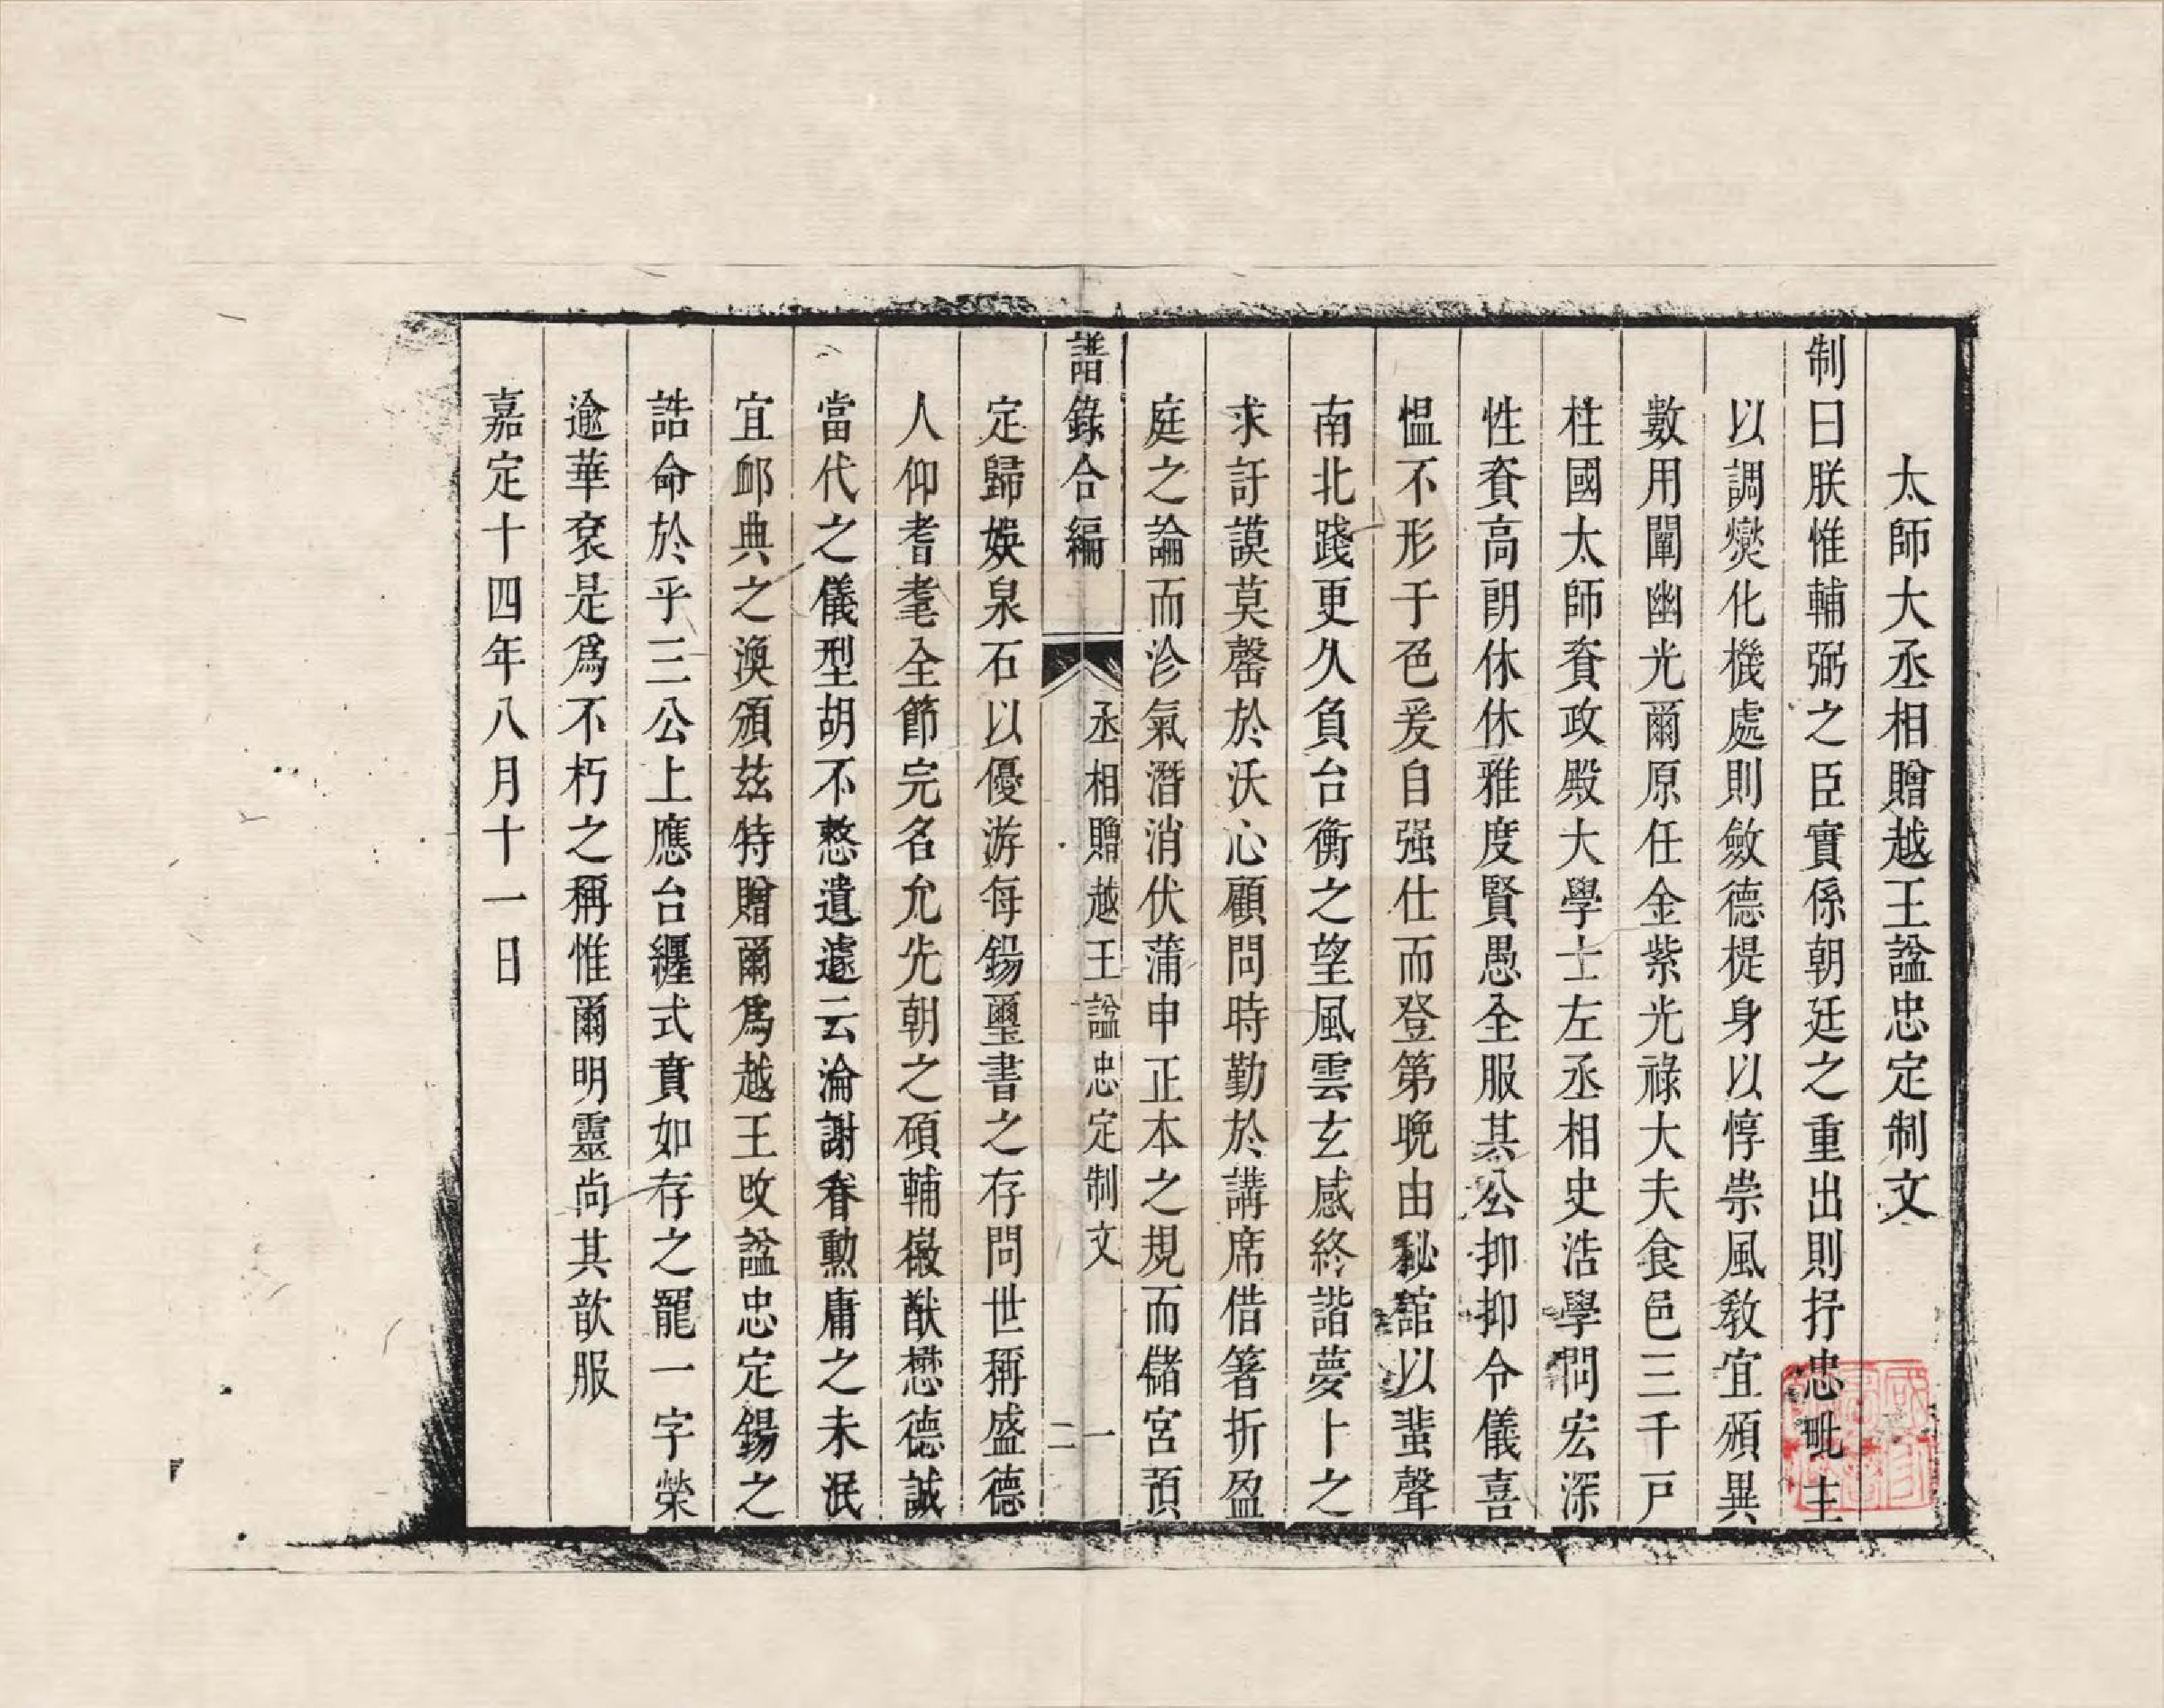 太師大丞相贈越王諡忠定制文
制曰朕惟輔弼之臣實係朝廷之重出則抒忠毗主
以調爕化機處則斂德禔身以惇崇風敎宜頒異
數用闡幽光爾原任金紫光祿大夫食邑三千戸
柱國太師資政殿大學士左丞相史浩學問宏深
性資高朗休休雅度賢愚全服其公抑抑令儀喜
愠不形于色爰自强仕而登第晚由秘館以蜚聲
南北踐更久負台衡之望風雲玄感終諧夢卜之
求訏謨莫罄於沃心顧問時勤於講席借箸折盈
庭之論而沴氣潛消伏蒲申正本之規而儲宮預
譜錄合編
丞相贈越王諡忠定制文
一
二
定歸娛泉石以優游每錫璽書之存問世稱盛德
人仰耆耄全節完名允先朝之碩輔徽猷懋德誠
當代之儀型胡不憗遺遽云淪謝眷勳庸之未泯
宜卹典之渙頒茲特贈爾爲越王改諡忠定錫之
誥命於乎三公上應台纏式賁如存之寵一字榮
逾華袞是爲不朽之稱惟爾明靈尚其歆服
嘉定十四年八月十一日